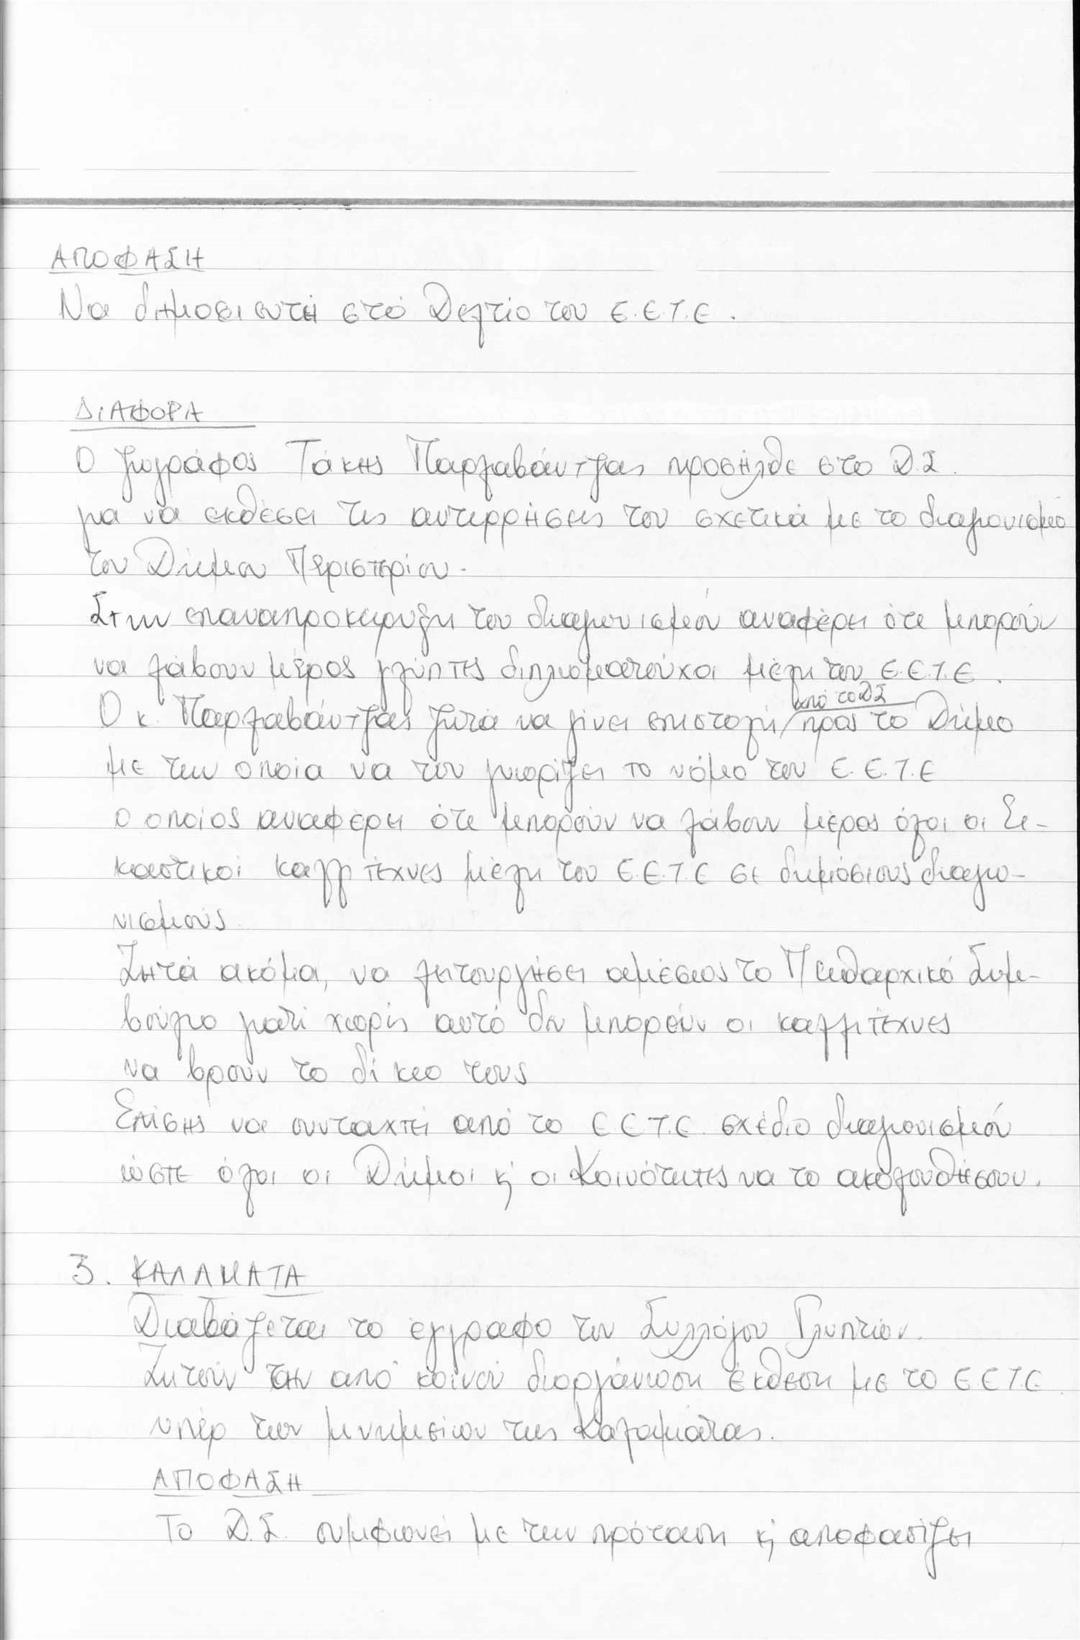 ΑΠΟΦΑΣΗ
Να δημοσιευτή στό Δελτίο του Ε.Ε.Τ.Ε.
ΔΙΑΦΟΡΑ
Ο ζωγράφος Τάκης Παρλαβάντζας προσήλθε στο Δ.Σ.
για να εκθέσει τις αντιρρήσεις του σχετικά με το διαγωνισμό
του Δήμου Περιστερίου.
Στην επαναπροκείρυξη του διαγωνισμού αναφέρει ότι μπορούν
να λάβουν μέρος γλύπτες διπλωματούχοι μέλη του Ε.Ε.Τ.Ε.
από το ΔΣ
Ο κ. Παρλαβάντζας ζητά να γίνει επιστολή / προς το Δήμο
με την οποία να του γνωρίζει το νόμο του Ε.Ε.Τ.Ε
ο οποίος αναφέρει ότι μπορούν να λάβουν μέρος όλοι οι Ει-
καστικοί καλλιτέχνες μέλη του Ε.Ε.Τ.Ε σε δημόσιους διαγω-
νισμούς.
Ζητά ακόμα, να λειτουργήσει αμέσως το Πειθαρχικό Συμ-
βούλιο γιατί χωρίς αυτό δεν μπορούν οι καλλιτέχνες
να βρουν το δίκεο τους
Επίσης να συνταχτεί από το Ε Ε Τ.Ε. σχέδιο διαγωνισμού
ώστε όλοι οι Δήμοι κ' οι Κοινότητες να το ακολουθήσουν.
3. ΚΑΛΑΜΑΤΑ
Διαβάζεται το έγγραφο του Συλλόγου Γλυπτών.
Ζητούν την από κοινού διοργάνωση έκθεση με το Ε.Ε.Τ.Ε
υπέρ των μνημείων της Καλαμάτας.
ΑΠΟΦΑΣΗ
Το Δ.Σ. συμφωνεί με την πρόταση κ' αποφασίζει